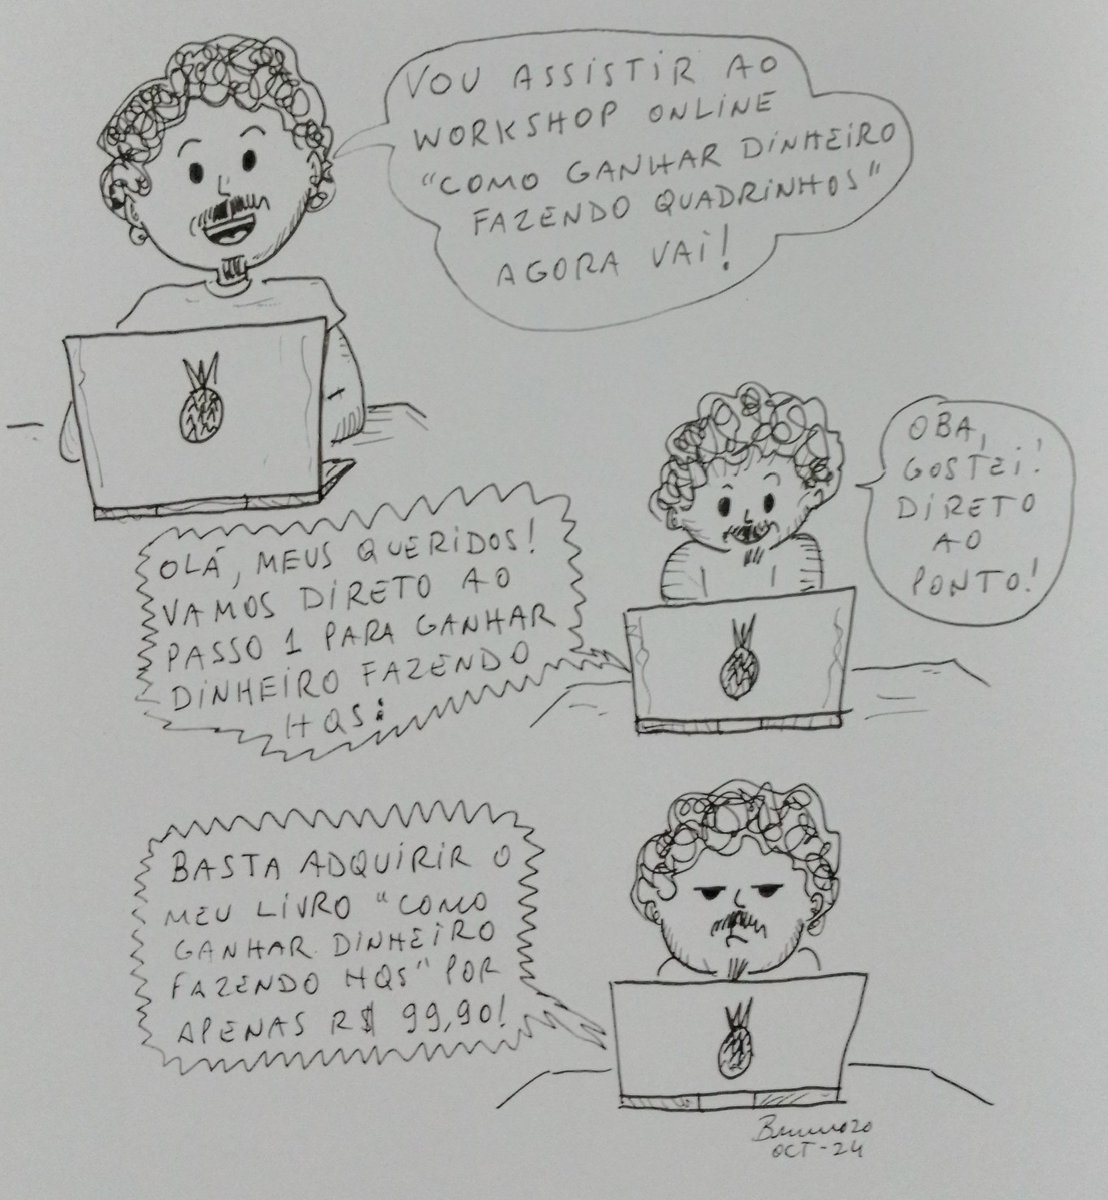 VOU ASSISTIR AO
WORKSHOP ONLINE
"COMO GANHAR DINHEIRO
FAZENDO QUADRINHOS"
AGORA VAI!
OBA,
GOSTEI!
DIRETO
AO
PONTO!
OLÁ, MEUS QUERIDOS!
VAMOS DIRETO AO
PASSO 1 PARA GANHAR
DINHEIRO FAZENDO
HQS:
BASTA ADQUIRIR O
MEU LIVRO "COMO
GANHAR DINHEIRO
FAZENDO HQS" POR
APENAS R$ 99,90!
OCT-24